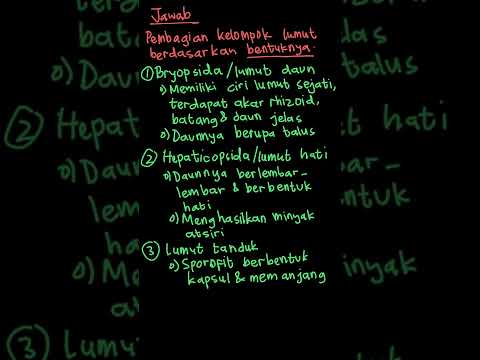 Jawab
Pembagian kelompok lumut
berdasarkan bentuknya.
① Bryopsida/lumut daun
o) Memiliki ciri lumut sejati,
terdapat akar rhizoid,
batang & daun jelas
o) Daunnya berupa talus
② Hepaticopsida/lumut hati
o) Daunnya berlembar-
lembar & berbentuk
hati
o) Menghasilkan minyak
atsiri
③ Lumut tanduk
o) Sporofit berbentuk
kapsul & memanjang